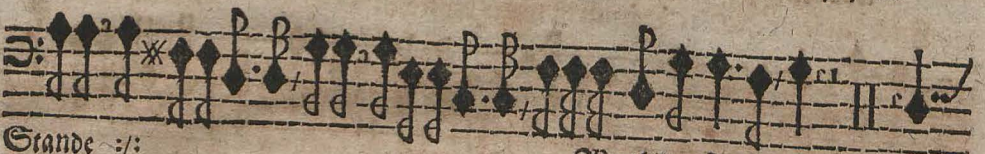 Stande :/: